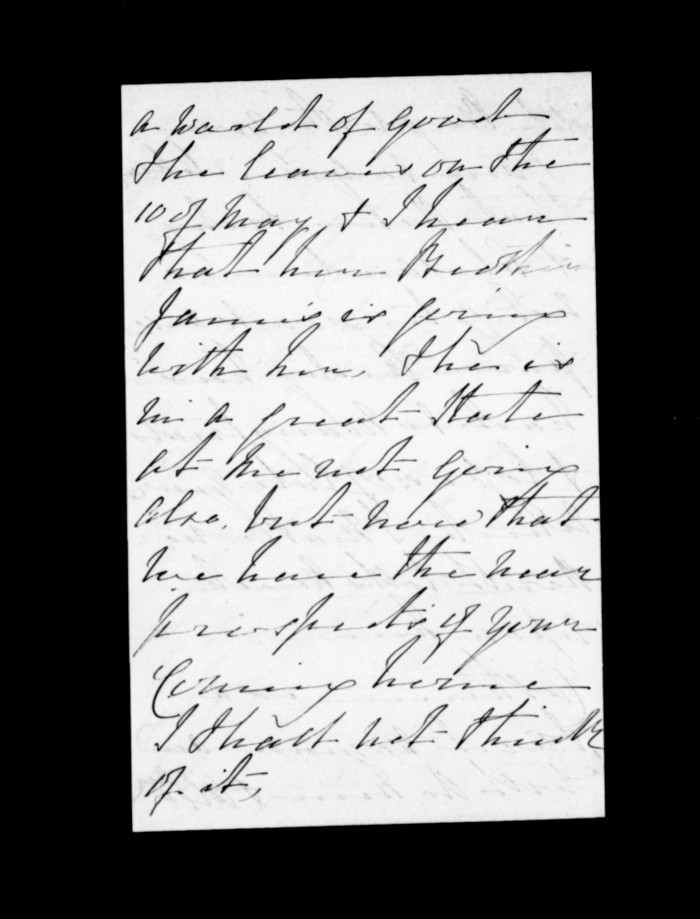 a world of good
She leaves on the
10 of May & I hear
that her Brother
James is going
with her, She is
in a great State
at me not going
also, but now that
we have the near
prospects of your
Coming home
I shall not think
of it,